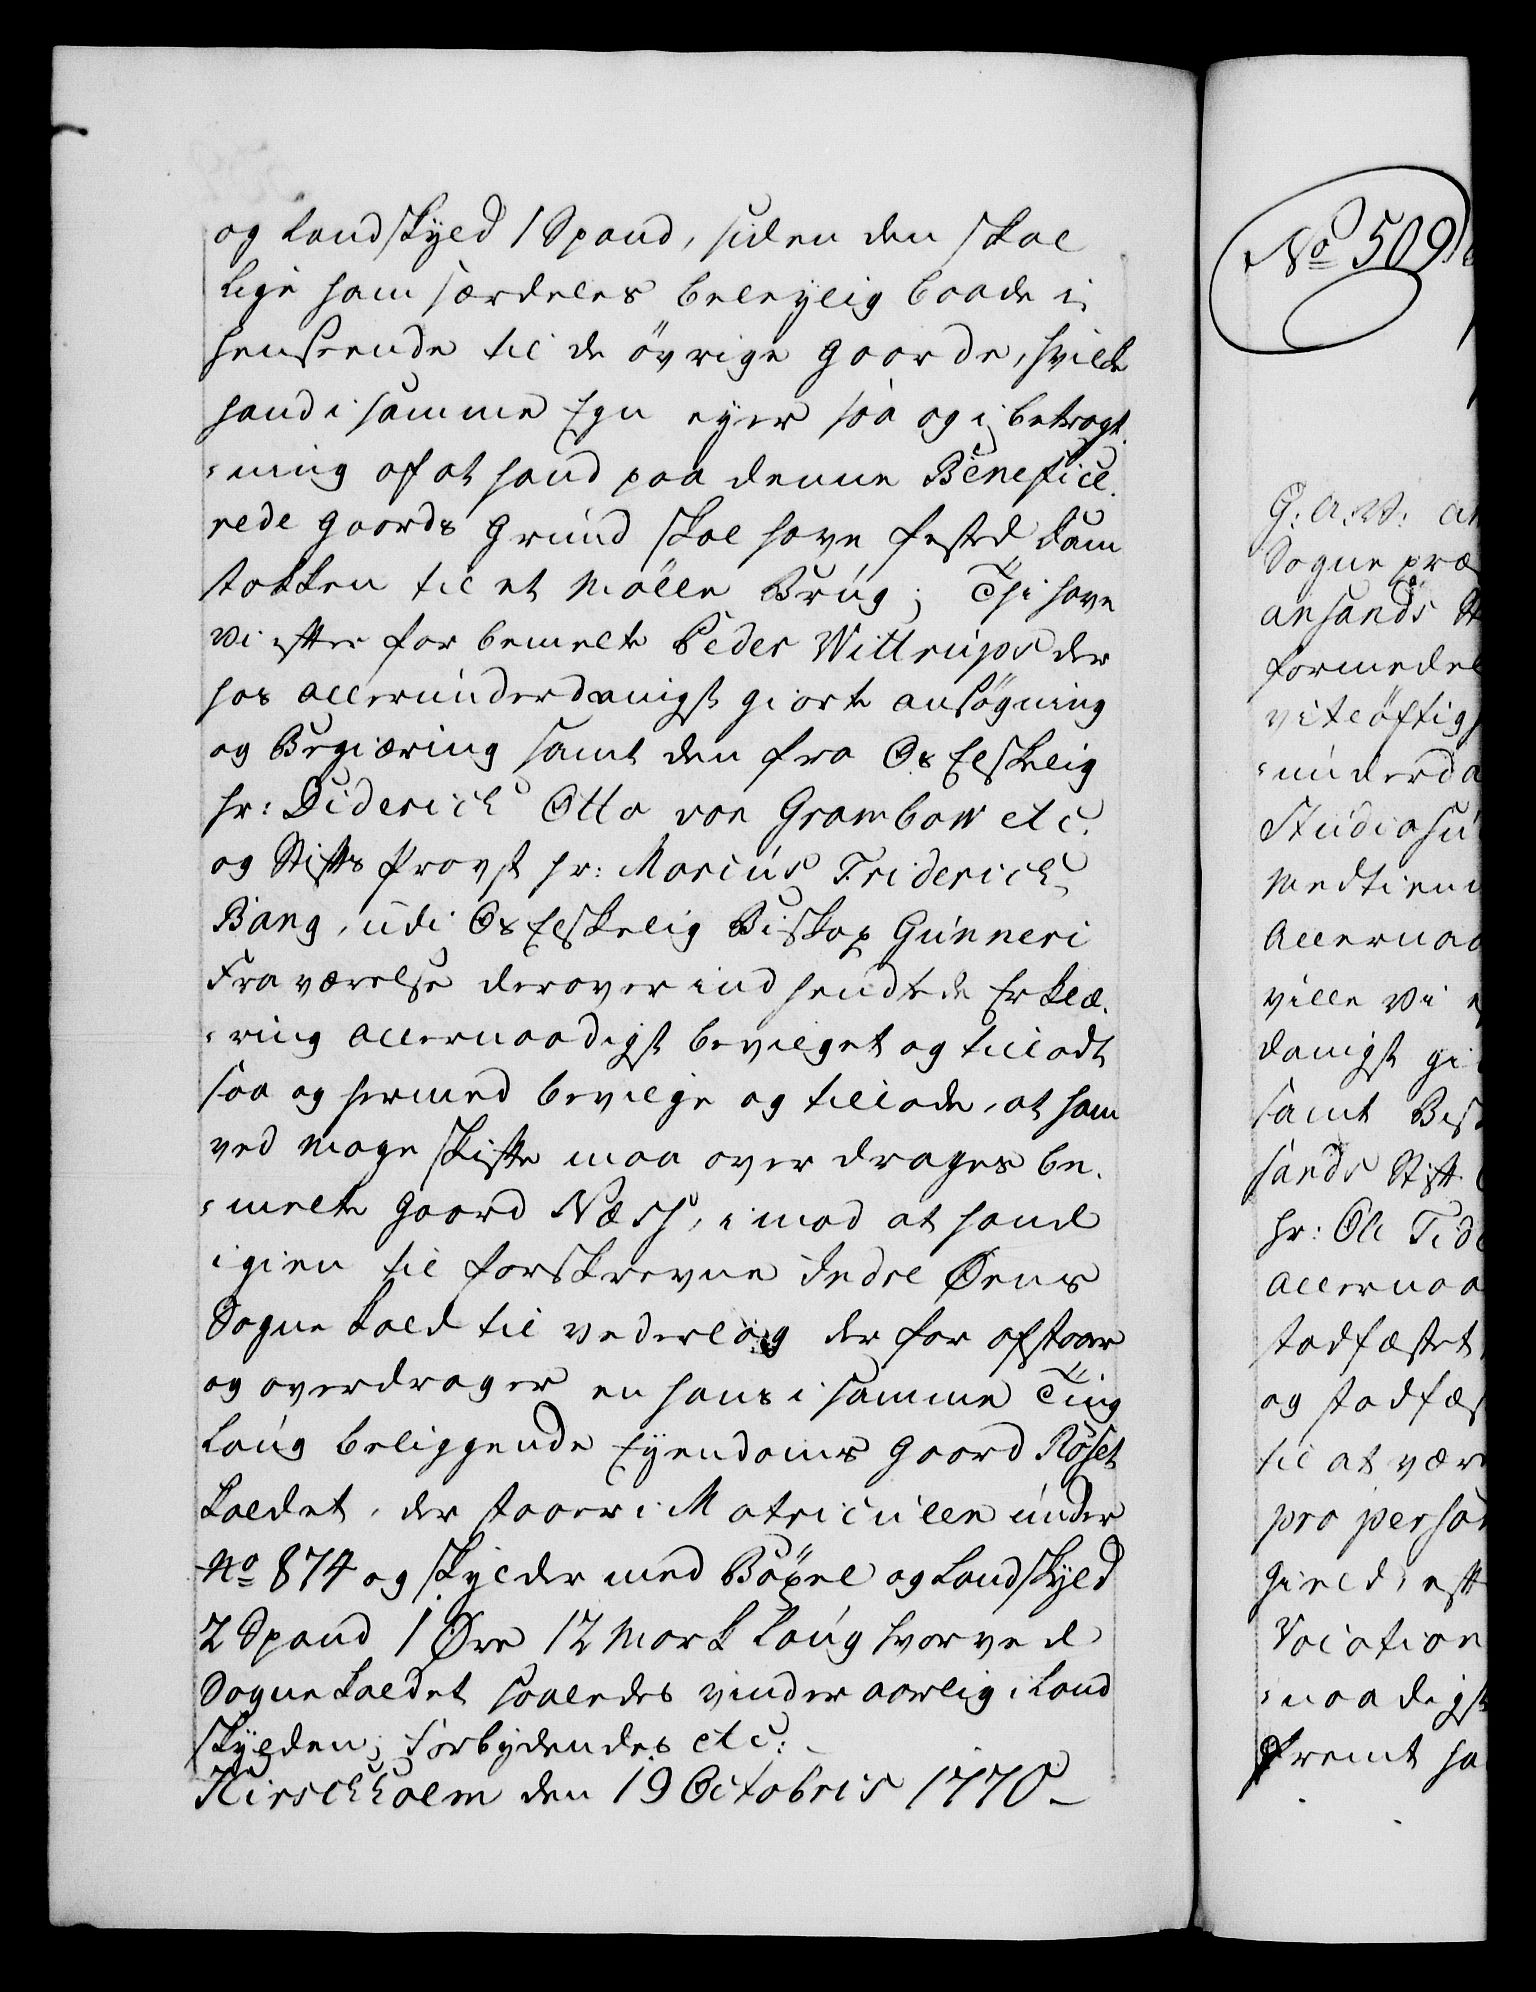 og Landskyld 1 Spand, siden den skal
lige ham særdeles beleylig baade i
henseende til de övrige Gaarde, hvilke
hand i samme Egn eyer saa og i betragt-
-ning af at hand paa denne Benefice-
rede Gaards Grund skal have fæsted dam
stokken til et Mölle Brug; Thi have
vi efter forbemelte Peder Wittrups der
hos allerunderdanigst giorte ansögning
og Begiæring samt den fra Os Elskelig
hr: Diderich Otto von Grambow etc.
og Stifts Provst hr: Marcus Friderich
Bang, udi Os Elskelig Biskop Gunneri
Fraværelse derover indsendtede Erklæ-
-ring allernaadigst bevilget og tilladt
saa og hermed bevilge og tillade, at ham
ved Mageskifte maa overdrages be-
-melte Gaard Næss, imod at hand
igien til forskrevne Indre Øens
Sogne Kald til vederlag derfor afstaar
og overdrager en hans i samme Ting
laug beliggende Eyendoms Gaard Röset
kaldet, der staaer i Matriculen under
No 874 og skylder med Böxel og Landskyld
2 Spand 1 Øre 12 Mark laug hvorved
Sognekaldet saaledes vinder aarlig i Land
skylden; Forbydendes etc:
Hirschholm den 19 Octobris 1770
No 509
G: A: V: at
Sogne præ
ansands St
formedel
vitlöftigh
-underda
Studiosu
Medtien
Allernaa
ville vi e
danigst gi
samt Bis
sands Stift
hr: Ole Tid
allernaa
stadfæstet
og stadfæs
til at vær
pro person
Gield, eft
Vocation
-naadigst
fremt ha